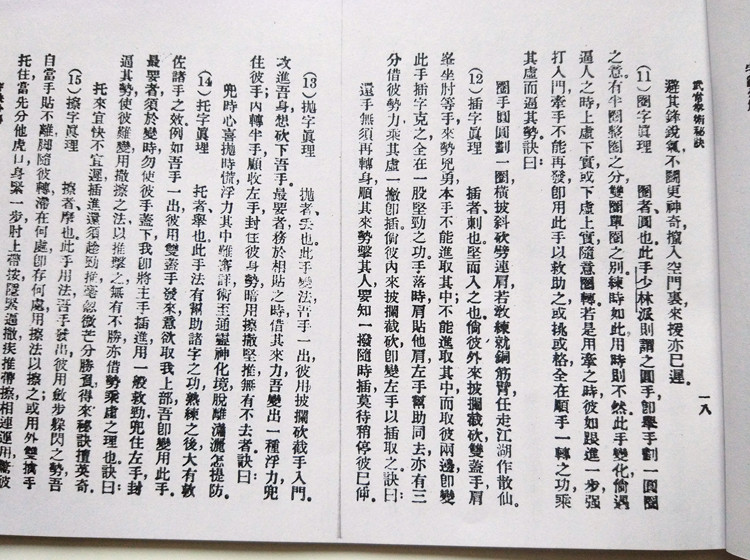 武當拳術秘訣
一八
避其鋒銳氣不鬭更神奇擅入空門裏來援亦已遲。
(11) 圈字眞理　圈者、圓也此手少林派則謂之圓手卽舉手劃一圓圈
之意。有半圈整圈之分雙圈單圈之別練時如此用時則不然此手變化倘遇
逼人之時上虛下實或下虛上實隨意圈轉。若是用牽之時彼如跟進一步强
打入門牽手不能再發卽用此手以救助之或挑或格全在順手一轉之功乘
其虛而逼其勢訣曰：
圈手圓圓劃一圈橫披斜砍劈連肩若敎練就銅筋臂任走江湖作散仙。
(12) 插字眞理　插者、刺也堅而入之也。倘彼外來披攔截砍雙蓋手肩
峯坐肘等手來勢兇勇本手不能進取其中；不能進取其中而取彼兩邊卽變
此手插字克之全在一股堅勁之功。手落時肩貼他肩左手幫助同去亦有三
分借彼勢力乘其虛一撇卽插倘彼內來披攔截砍卽變左手以插取之。訣曰：
還手無須再轉身順其來勢擊其人要知一撥隨時插莫待稍停彼已伸。
(13) 拋字眞理　拋者、丟也。此手變法吾手一出彼用披攔砍截手入門。
攻進吾身想砍下吾手。最要者務於相貼之時借其來力吾變出一種浮力兜
住彼手；內轉半手順收左手封住彼身勢暗用擦撒堅推無有不去者訣曰：
兜時心喜拋時慌浮力其中難審詳術王通靈神化境脫離瀟灑怎提防。
(14) 托字眞理　托者、舉也此手法有幫助諸字之功熟練之後大有救
佐諸手之效例如吾手一出彼用雙蓋手發來意欲取我上部吾卽變用此手。
最要者須於變時勿使彼手蓋下我卽將主手插進用一般救勁兜住左手封
逼其勢使彼難變用撒擦之法以推擊之無有不勝亦借勢乘虛之理也訣曰：
托來宜快不宜遲插進還須趁勁推毫忽微芒分勝負得來秘訣擅英奇。
(15) 擦字眞理　擦者、摩也此手用法吾手發出彼用啟步躱閃之勢吾
自當手貼不離脚隨彼轉滯在何處卽存何處用擦法以擦之；或用外雙擒手
托住當先分他虎口身緊一步肘上帶按隱緊逼撒疾推帶擦相連運用驚彼